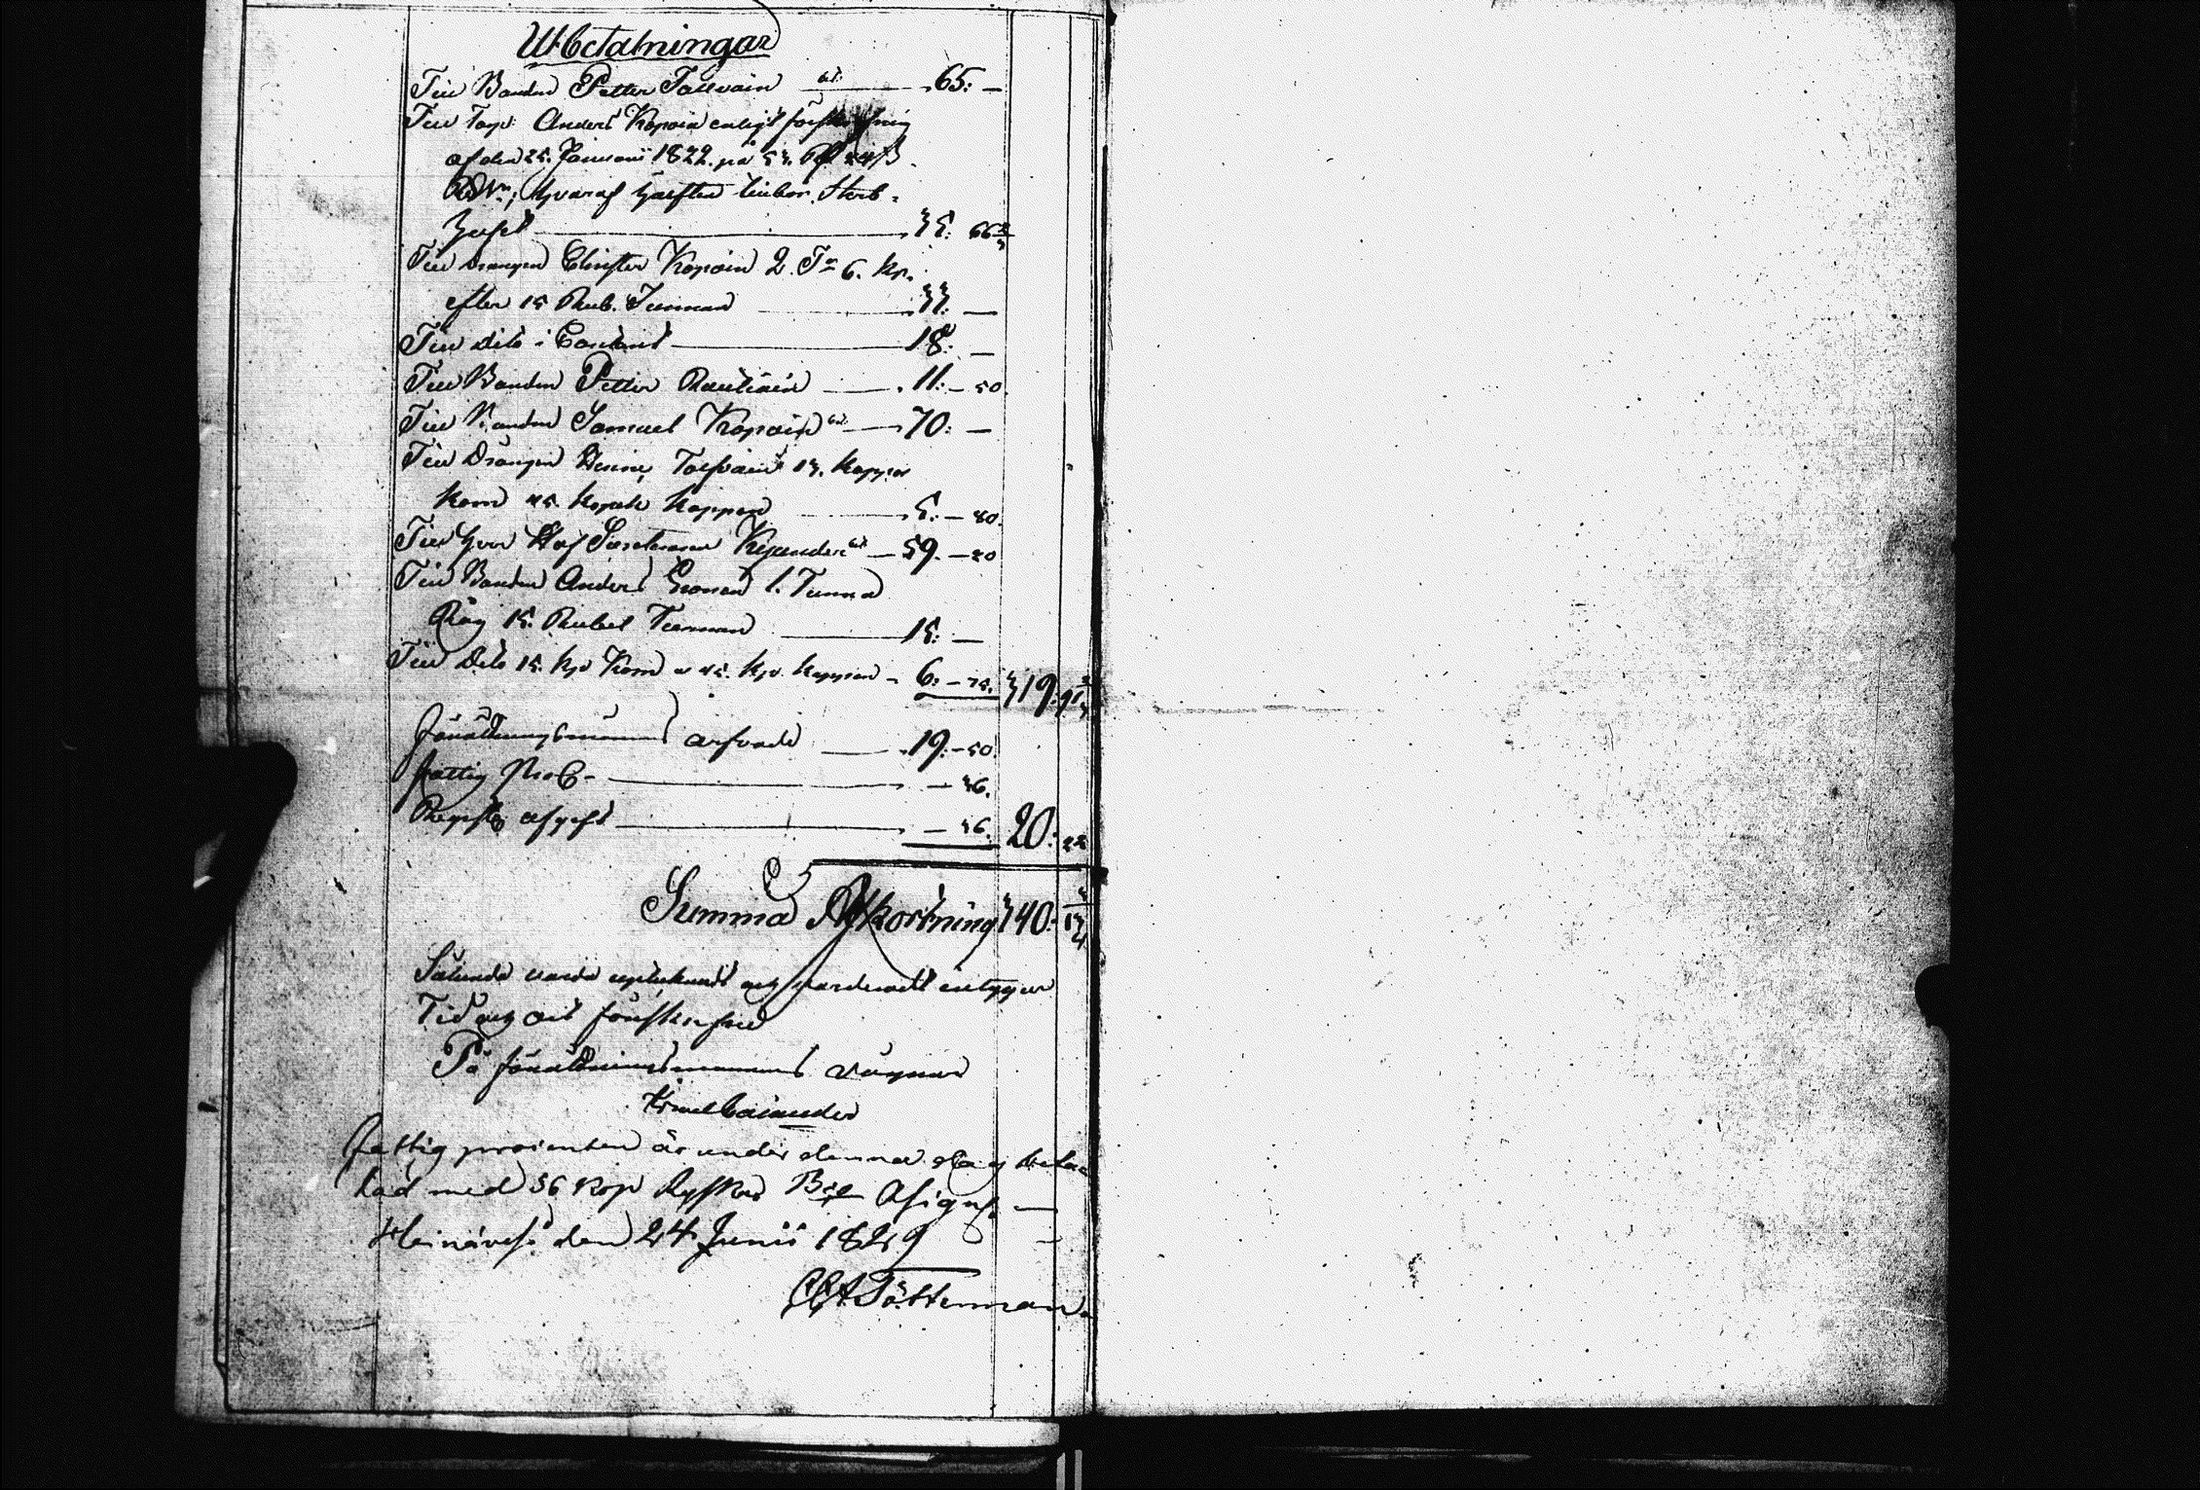 Utbetalningar
Till Bonden Petter Tolfvain 65: —
Till Torp: Anders Kopoin enligt förskrifning
af den 25. Januarii 1822. på 53. Rd 24 ß
Hvaraf hälften tillkom. Sterb-
huset 35: 66 2/3
Till Drängen Christer Kopoin 2. T:r 6. kp.
efter 15 Rub. Tunnan 33: —
Till dito i Contant 18: —
Till Bonden Petter Rautiain 11: — 50.
Till Bonden Samuel Kopoin 70: —
Till Drängen Henric Tolfvain 13. kappar
Korn 45. kopek kappen 5: — 80.
Till Herr Hof Kyander 59. — 20
Till Bonden Anders Eronen 1. Tunna
Råg 15. Rubel Tunnan 15: —
Till Dito 15. kp. Korn a 45. kp. kappen 6: — 75. 319: 91 2/3
Förrättningsmannens arfvode 19: — 50.
Fattig Proc. — 36.
Regist. afgift — 36. 20: 22
Summa Afkortning 340: 13 2/3
Sålunda vara uptecknadt och värderadt intygar
Tid och ort förutskrifne
På förrättningsmannens vägnar
Fattig procenten är under denna dag beta-
lad med 36 kop Ryska B:co Assign. —
Heinävesi den 24 Junii 1829
Tötterman.